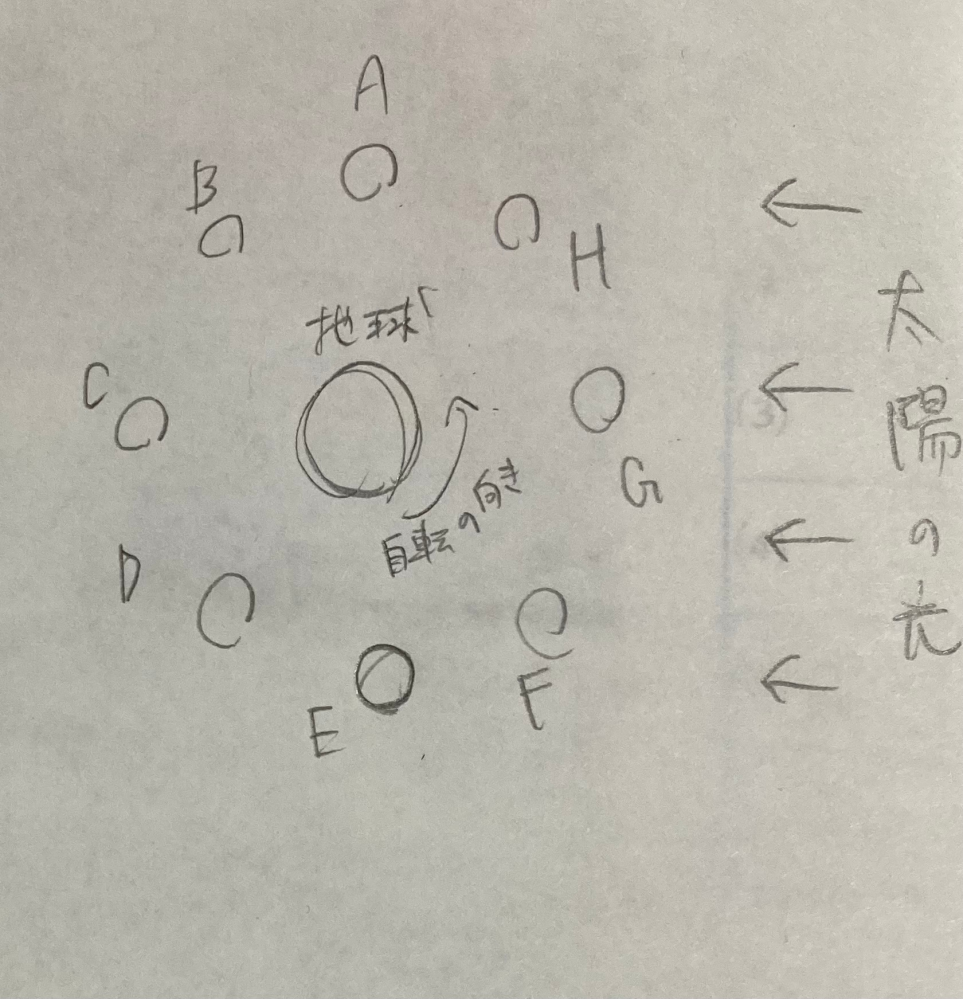 A
B
H
地球
C
G
自転の向き
D
E
F
太陽の光